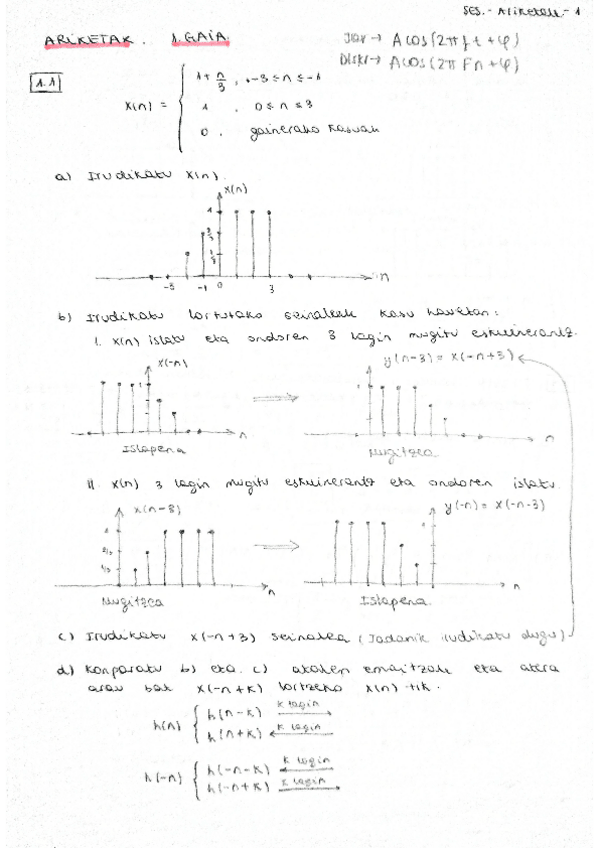 SES.- Ariketak.- 1
ARIKETAK. 1.GAIA.
Jarr → A cos(2π f t + φ)
Diskr → A cos(2π F n + φ)
1.1
x(n) =
1 + n/3 , -3 ≤ n ≤ -1
1 , 0 ≤ n ≤ 3
0 , gainerako kasuak
a) Irudikatu x(n).
x(n)
1
2/3
1/3
-3 -1 0 3 n
b) Irudikatu lortutako seinaleak kasu hauetan:
I. x(n) islatu eta ondoren 3 lagin mugitu eskuinerantz.
x(-n)
y(n-3) = x(-n+3)
1
n
n
Islapena
Mugitzea
II. x(n) 3 lagin mugitu eskuinerantz eta ondoren islatu
x(n-3)
y(-n) = x(-n-3)
1
2/3
1/3
n
1
n
Mugitzea
Islapena.
c) Irudikatu x(-n+3) seinalea (Jadanik irudikatu dugu)
d) Konparatu b) eta c) atalen emaitzak eta atera
arau bat x(-n+k) lortzeko x(n)-tik.
h(n)
h(n-k) k lagin
h(n+k) k lagin
h(-n)
h(-n-k) k lagin
h(-n+k) k lagin